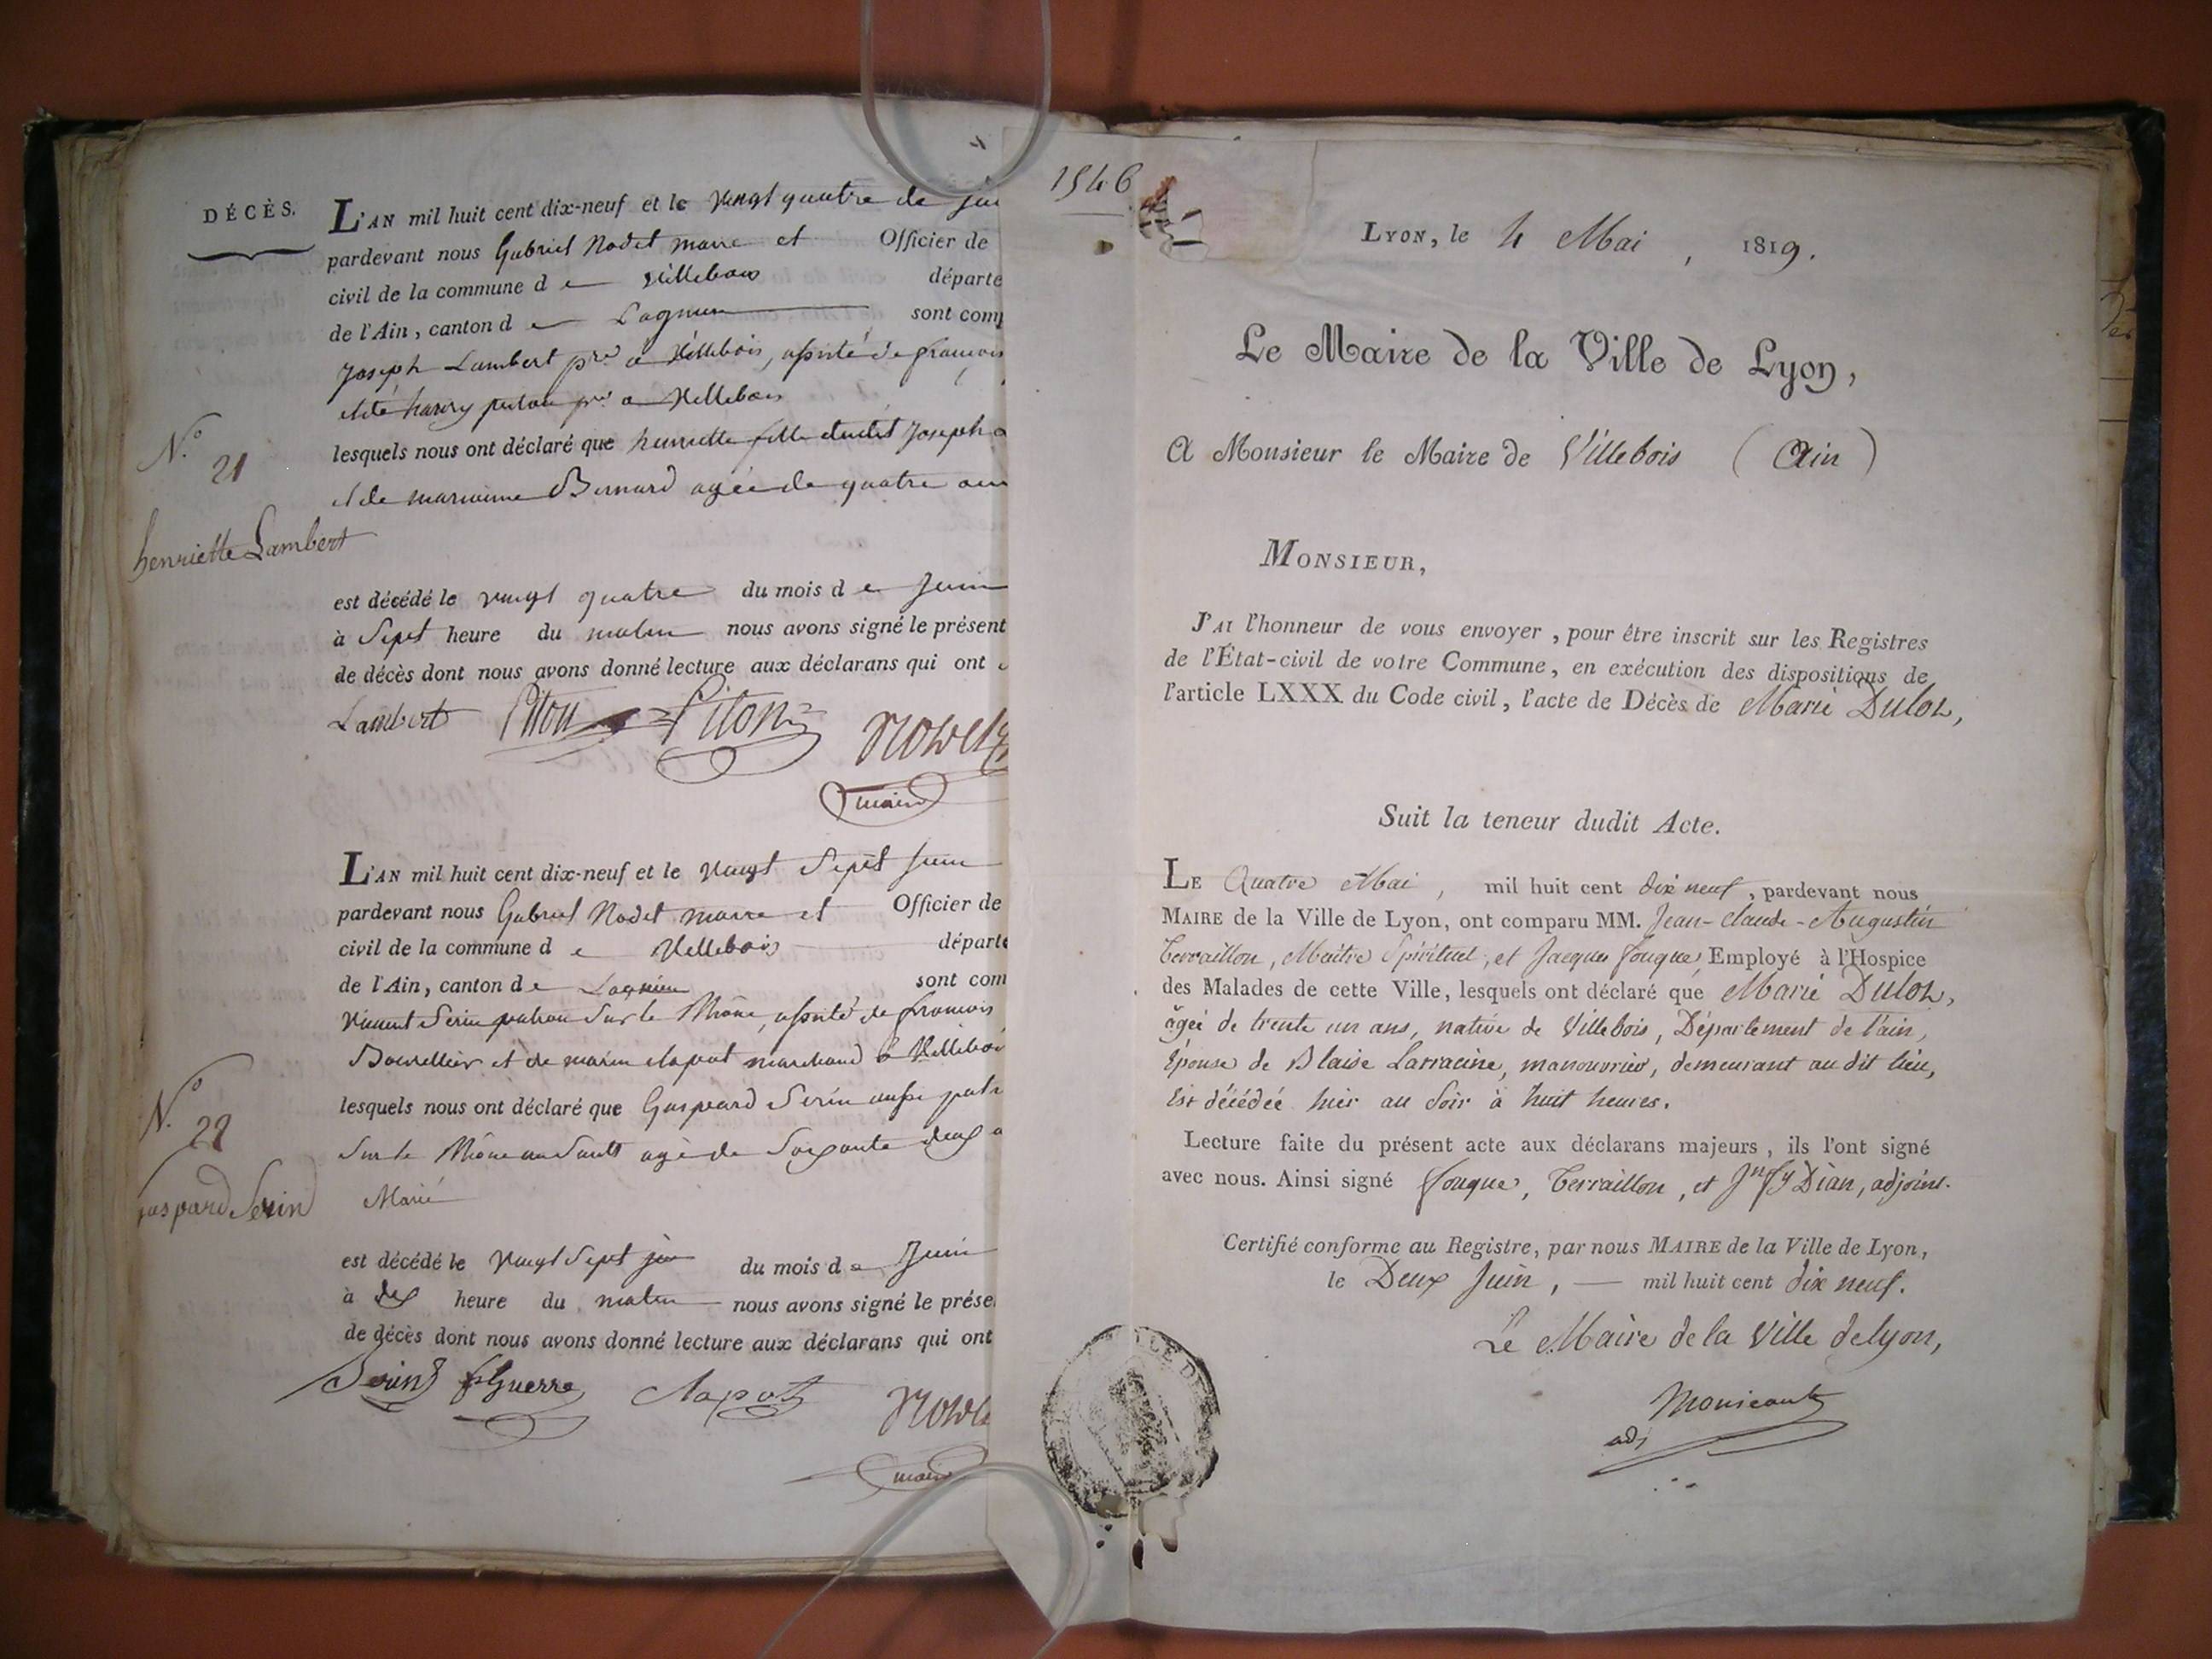 DÉCÈS.
L'AN mil huit cent dix-neuf et le vingt quatre de
pardevant nous Gabriel Nodet maire et Officier de
civil de la commune d e Villebois départe
de l'Ain, canton d e Lagnieu sont com
joseph Lambert pre a Villebois, assisté de françois
a Villebois
lesquels nous ont déclaré que henriette fille dudit Joseph
et de marianne Bernard agée de quatre ans
N.o 21
henriette Lambert
est décédé le vingt quatre du mois d e Juin
à Sept heure du matin nous avons signé le présent
de décès dont nous avons donné lecture aux déclarans qui ont
Lambert Piton Piton
maire
L'AN mil huit cent dix-neuf et le vingt Sept Juin
pardevant nous Gabriel Nodet maire et Officier de
civil de la commune d e Villebois départe
de l'Ain, canton d e Lagnieu sont com
Vincent Serin patron Sur le Rhône, assisté de francois
et de marin clapot marchand à Villeboi
lesquels nous ont déclaré que Gaspard Serin aussi patr
Sur le Rhône au Sault agé de Soixante deux a
Marié
N.o 22
gaspard Serin
est décédé le vingt Sept du mois d e Juin
à dix heure du matin nous avons signé le prése
de décès dont nous avons donné lecture aux déclarans qui ont
Serin Guerre Clapot
maire
1546
LYON, le 4 Mai, 1819.
Le Maire de la Ville de Lyon,
A Monsieur le Maire de Villebois (Ain)
MONSIEUR,
J'AI l'honneur de vous envoyer, pour être inscrit sur les Registres
de l'État-civil de votre Commune, en exécution des dispositions de
l'article LXXX du Code civil, l'acte de Décès de Marie Duloz,
Suit la teneur dudit Acte.
LE Quatre Mai, mil huit cent dix neuf, pardevant nous
MAIRE de la Ville de Lyon, ont comparu MM. Jean-Claude-Augustin
Terraillon, Maître Spirituel, et Jacques Fouque, Employé à l'Hospice
des Malades de cette Ville, lesquels ont déclaré que Marie Duloz,
âgée de trente un ans, native de Villebois, Département de l'ain,
Épouse de Blaise Larracine, manouvrier, demeurant au dit lieu,
Est décédée hier au Soir à huit heures.
Lecture faite du présent acte aux déclarans majeurs, ils l'ont signé
avec nous. Ainsi signé Fouque, Terraillon, et Jn fs Dian, adjoint.
Certifié conforme au Registre, par nous MAIRE de la Ville de Lyon,
le Deux Juin, — mil huit cent dix neuf.
Le Maire de la Ville de Lyon,
Monicault
adj